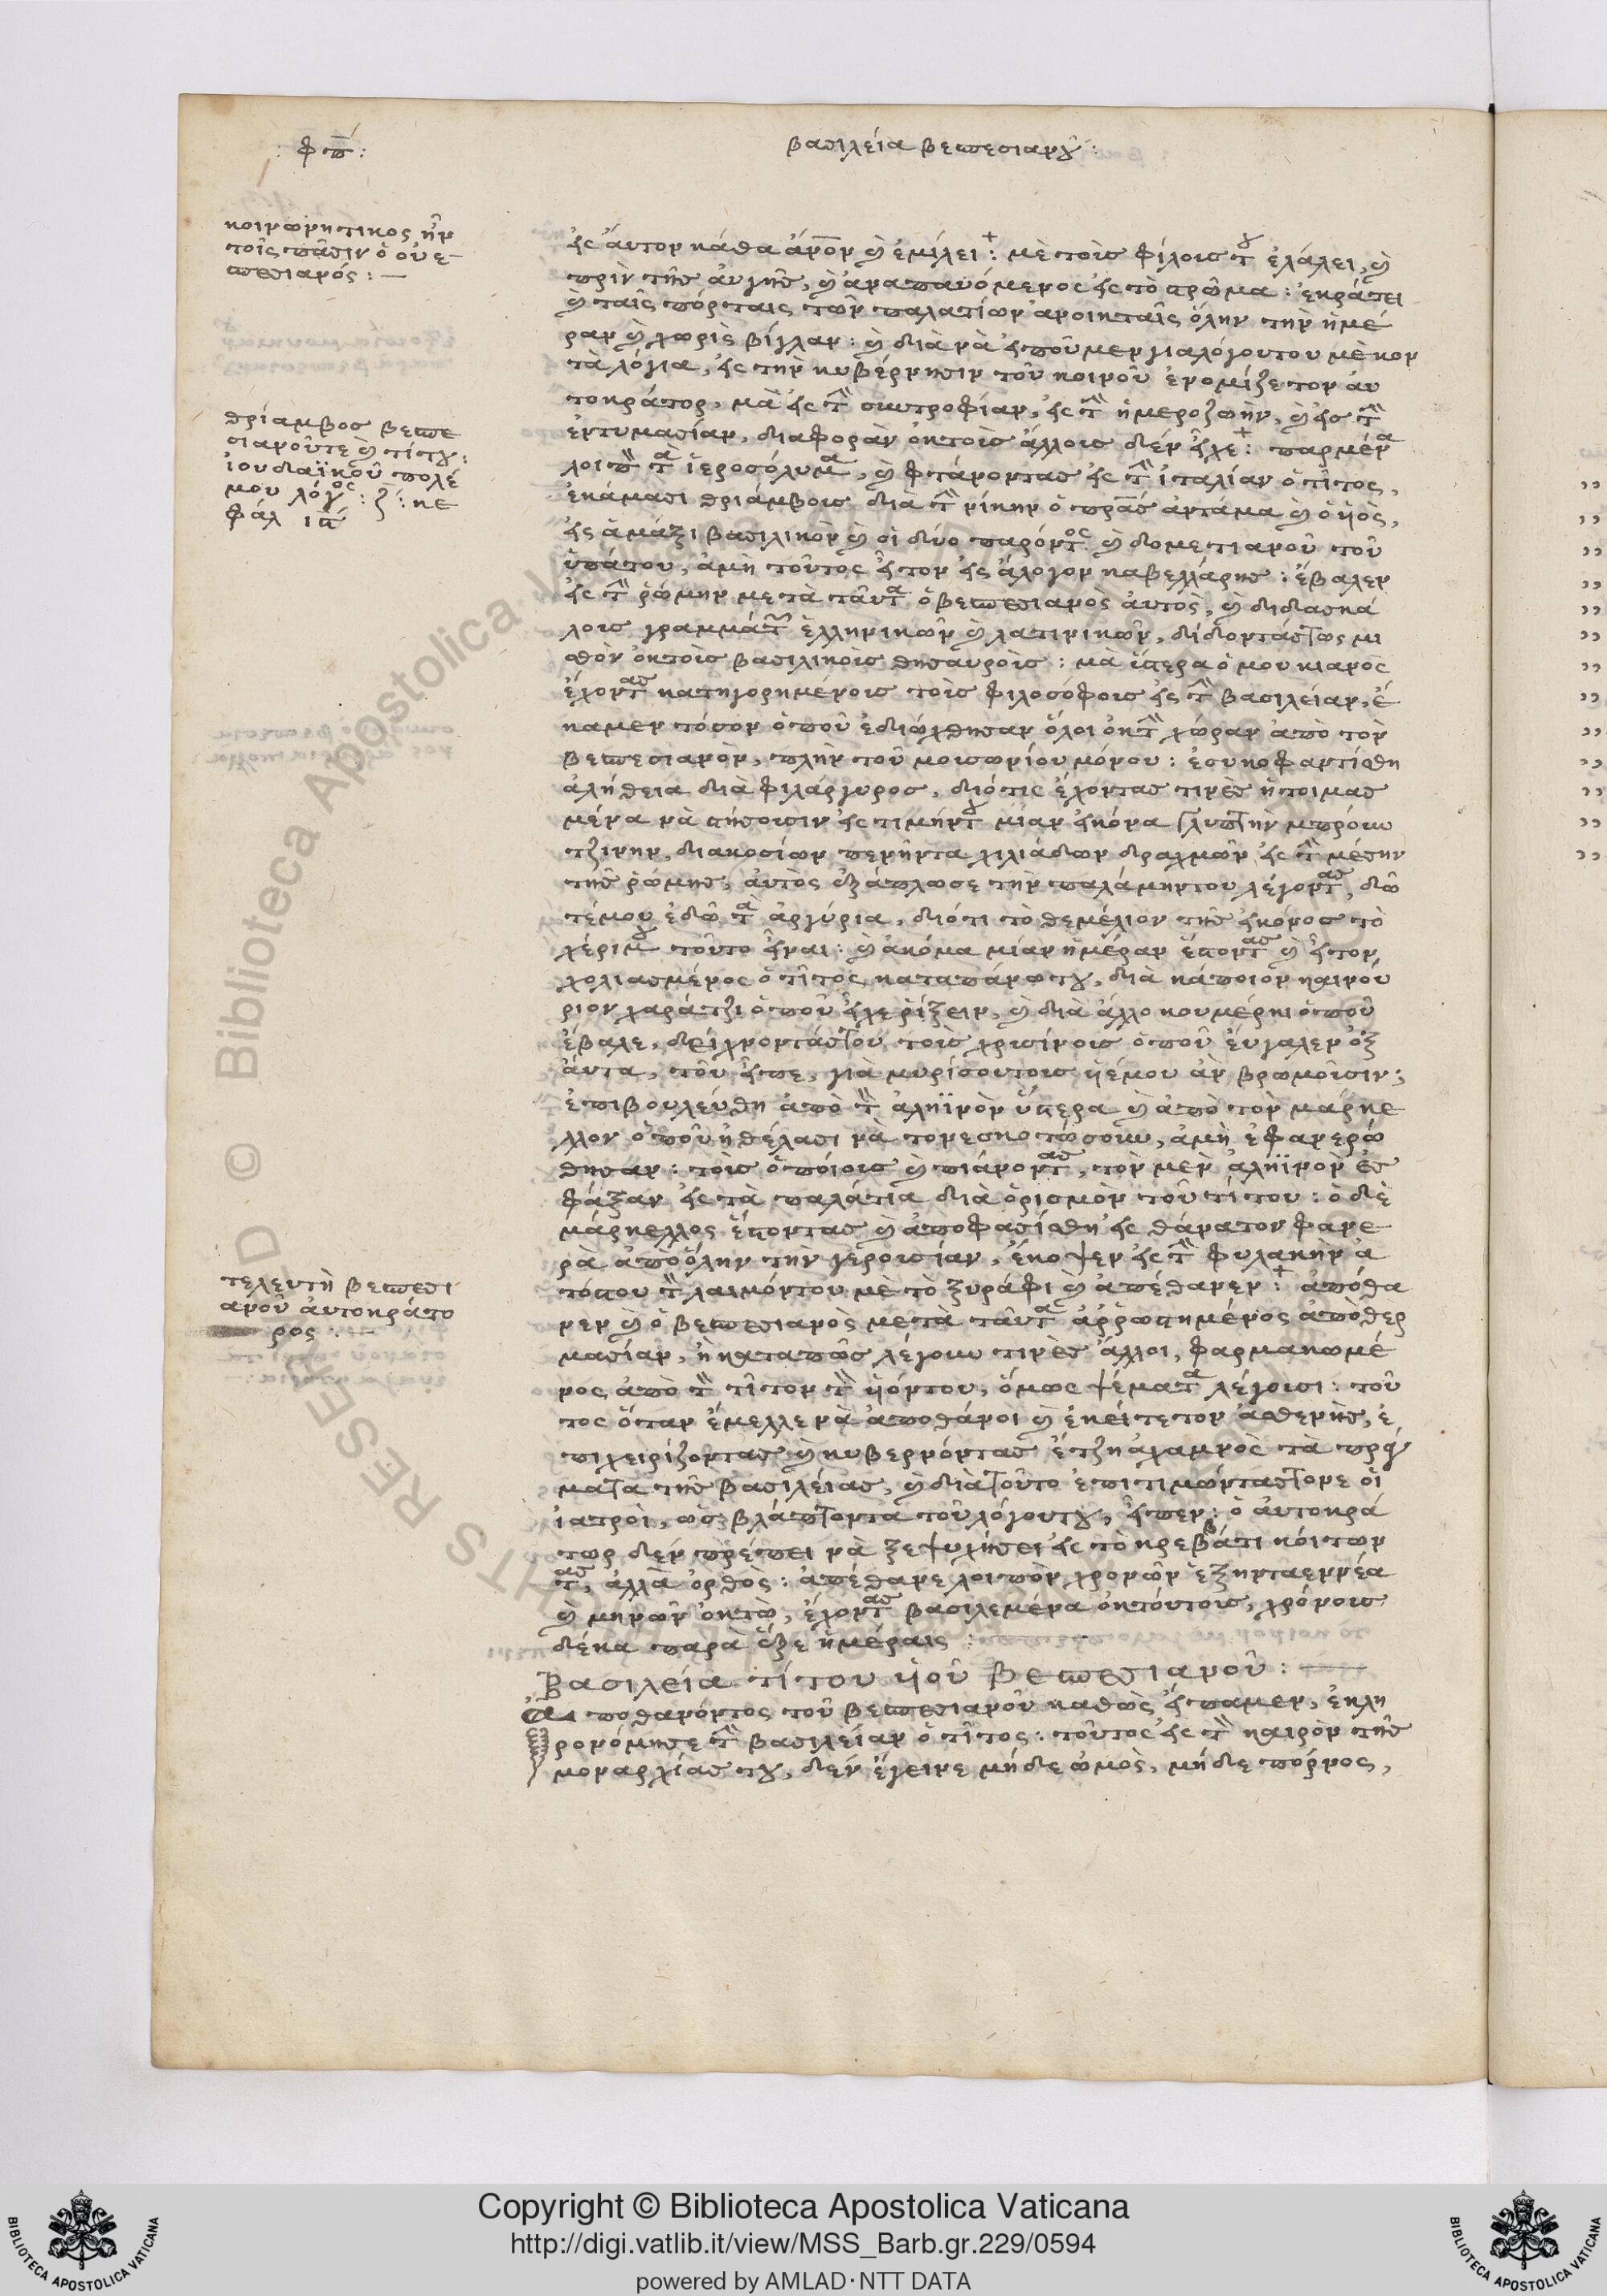 : φπ :
βασιλεία βεσπεσιανοῦ :
κοινωνητικος ἦν
τοῖς πᾶσιν ὁ οὐε-
σπεσιανός : —
εἰς αὐτον κάθα ἄνον καὶ ἐμίλει : μὲ τοὶς φίλοις του ἐλάλει, καὶ
πρὶν τῆς ἀυγῆς, καὶ ἀναπαυόμενος εἰς τὸ στρῶμα : ἐκράτει
καὶ ταῖς πόρταις τῶν παλατίων ἀνοικταῖς ὅλην τὴν ἡμέ
ραν καὶ χωρὶς βίγλαν : καὶ διὰ νὰ εἰποῦμεν γιαλόγουτου μὲ κον
τὰ λόγια, εἰς τὴν κυβέρνησιν τοῦ κοινοῦ ἐνομίζετον ἀυ
τοκράτορ, μὰ εἰς τὴν σωτροφίαν, εἰς τὴν ἡμεροζωὴν, καὶ εἰς τὴν
ἐντυμασίαν, διαφορὰν ὀκτοὶς ἄλλοις δὲν εἶχε : παρμένα
θρίαμβος βεσπε
σιανοῦτε καὶ τίτου :
ἰουδαϊκοῦ πολέ
μου λόγος : ζ : κε
φάλ ια
λοιπὸν τὰ ἱεροσόλυμα, καὶ φτάνοντας εἰς τὴν ἰταλίαν ὁ τῖτος,
ἐκάμασι θριάμβοις διὰ τὴν νίκην ὁ πρᾶς ἀντάμα καὶ ὁ ὑιὸς,
εἰς ἁμάξι βασιλικὸν καὶ οἱ δύο παρόντος καὶ δομετιανοῦ τοῦ
ὑπάτου, ἀμὴ τοῦτος εἶτον εἰς ἄλογον καβελλάρης : ἔβαλεν
εἰς τὴν ῥώμην μετὰ ταῦτα ὁ βεσπεσιανὸς ἀυτὸς, καὶ διδασκά
λοις γραμμάτων ἑλληνικῶν καὶ λατινικῶν, δίδοντάςτως μι
σθὸν ὀκτοὶς βασιλικοὶς θησαυροὶς : μὰ ὕστερα ὁ μουκιανὸς
ἔχοντας κατηγορημένοις τοὶς φιλοσόφοις εἰς τὴν βασιλείαν, ἔ
καμεν τόσον ὁποῦ ἐδιώχθησαν ὅλοι ὀκτὴν χώραν ἀπὸ τὸν
βεσπεσιανὸν, πλὴν τοῦ μουσωνίου μόνου : ἐσυκοφαντίσθη
ἀλήθεια διὰ φιλάργυρος, διότις ἔχοντας τινὲς ἡτοιμας
μένα νὰ στήσουσιν εἰς τιμήντου μίαν εἰκόνα γλυπτὴν μπρόυω
τζινην, διακοσίων πενῆντα χιλιάδων δραχμῶν εἰς τὴν μέσην
τῆς ῥώμης, ἀυτὸς ἐξάπλωσε τὴν παλάμηντου λέγοντας, δῶ
τέμου ἐδῶ τὰ ἀργύρια, διότι τὸ θεμέλιον τῆς εἰκόνος τὸ
χέριμου τοῦτο εἶναι : καὶ ἀκόμα μίαν ἡμέραν ἔστοντας καὶ εἶτον
χολιασμένος ὁ τῖτος καταπάνωτου, διὰ κάποιον καινού
ριον χαράτζι ὁποῦ εἶχε ῥίξειν, καὶ διὰ ἄλλο κουμέρκι ὁποῦ
ἔβαλε, δείχνοντάςτου τοὶς χρυσίνοις ὁποῦ ἔυγαλεν ὀξ
ἄυτα, τοῦ εἶπε, γιὰ μυρίσουτοις ὑιέμου ἂν βρωμοῦσιν ;
ἐπιβουλέυθη ἀπὸ τὸν ἀληϊνὸν ὕστερα καὶ ἀπὸ τὸν μάρκε
λλον ὁποῦ ἠθέλασι νὰ τονεσκοτώσουω, ἀμὴ ἐφανερώ
θησαν : τοὶς ὁποίοις καὶ πιάνοντας, τὸν μὲν ἀληϊνὸν ἐσ
φάξαν εἰς τὰ παλάτια διὰ ὁρισμὸν τοῦ τίτου : ὁ δὲ
μάρκελλος ἔστοντας καὶ ἀποφασίσθη εἰς θάνατον φανε
ρὰ ἀπὸ ὅλην τὴν γερουσίαν, ἔκοψεν εἰς τὴν φυλακὴν ἀ
τόστου τὸν λαιμόντου μὲ τὸ ξυράφι καὶ ἀπέθανεν : ἀπόθα
τελευτὴ βεσπεσι
ανοῦ ἀυτοκράτο
ρος : —
νεν καὶ ὁ βεσπεσιανὸς μετὰ ταῦτα ἀῤῥωστημένος ἀπὸ θερ
μασίαν, ἢ καταπῶς λέγουω τινὲς ἄλλοι, φαρμακωμέ
νος ἀπὸ τὸν τῖτον τὸν ὑιόντου, ὅμως ψέματα λέγουσι : τοῦ
τος ὅταν ἔμελλε νὰ ἀποθάνοι καὶ ἐκείτετον ἀσθενὴς, ἐ
πιχειρίζοντας καὶ κυβερνόντας ἔτζη ἀχαμνὸς τὰ πρά
γματα τῆς βασιλείας, καὶ διὰτοῦτο ἐπιτιμώνταςτονε οἱ
ἰατροὶ, ὡς βλάπτοντα τοῦ λόγουτου, εἶπεν : ὁ ἀυτοκρά
τωρ δὲν πρέπει νὰ ξεψυχήσει εἰς τὸ κρεβάτι κοίτων
τας, ἀλλὰ ὀρθὸς : ἀπέθανε λοιπὸν χρονῶν ἑξηνταεννέα
καὶ μηνῶν ὀκτὼ, ἔχοντας βασιλεμένα ὀκτόυτοις, χρόνοις
δέκα παρὰ ἕξε ἡμέραις :
Βασιλεία τίτου ὑιοῦ βεσπεσιανοῦ : —
Αποθανόντος τοῦ βεσπεσιανοῦ καθὼς εἴπαμεν, ἐκλη
ρονόμησε τὴν βασιλείαν ὁ τῖτος : τοῦτος εἰς τὸν καιρὸν τῆς
μοναρχίας του, δὲν ἔγεινε μήδε ὠμὸς, μήδε πόρνος,
Copyright © Biblioteca Apostolica Vaticana
http://digi.vatlib.it/view/MSS_Barb.gr.229/0594
powered by AMLAD·NTT DATA
BIBLIOTECA APOSTOLICA VATICANA
BIBLIOTECA APOSTOLICA VATICANA